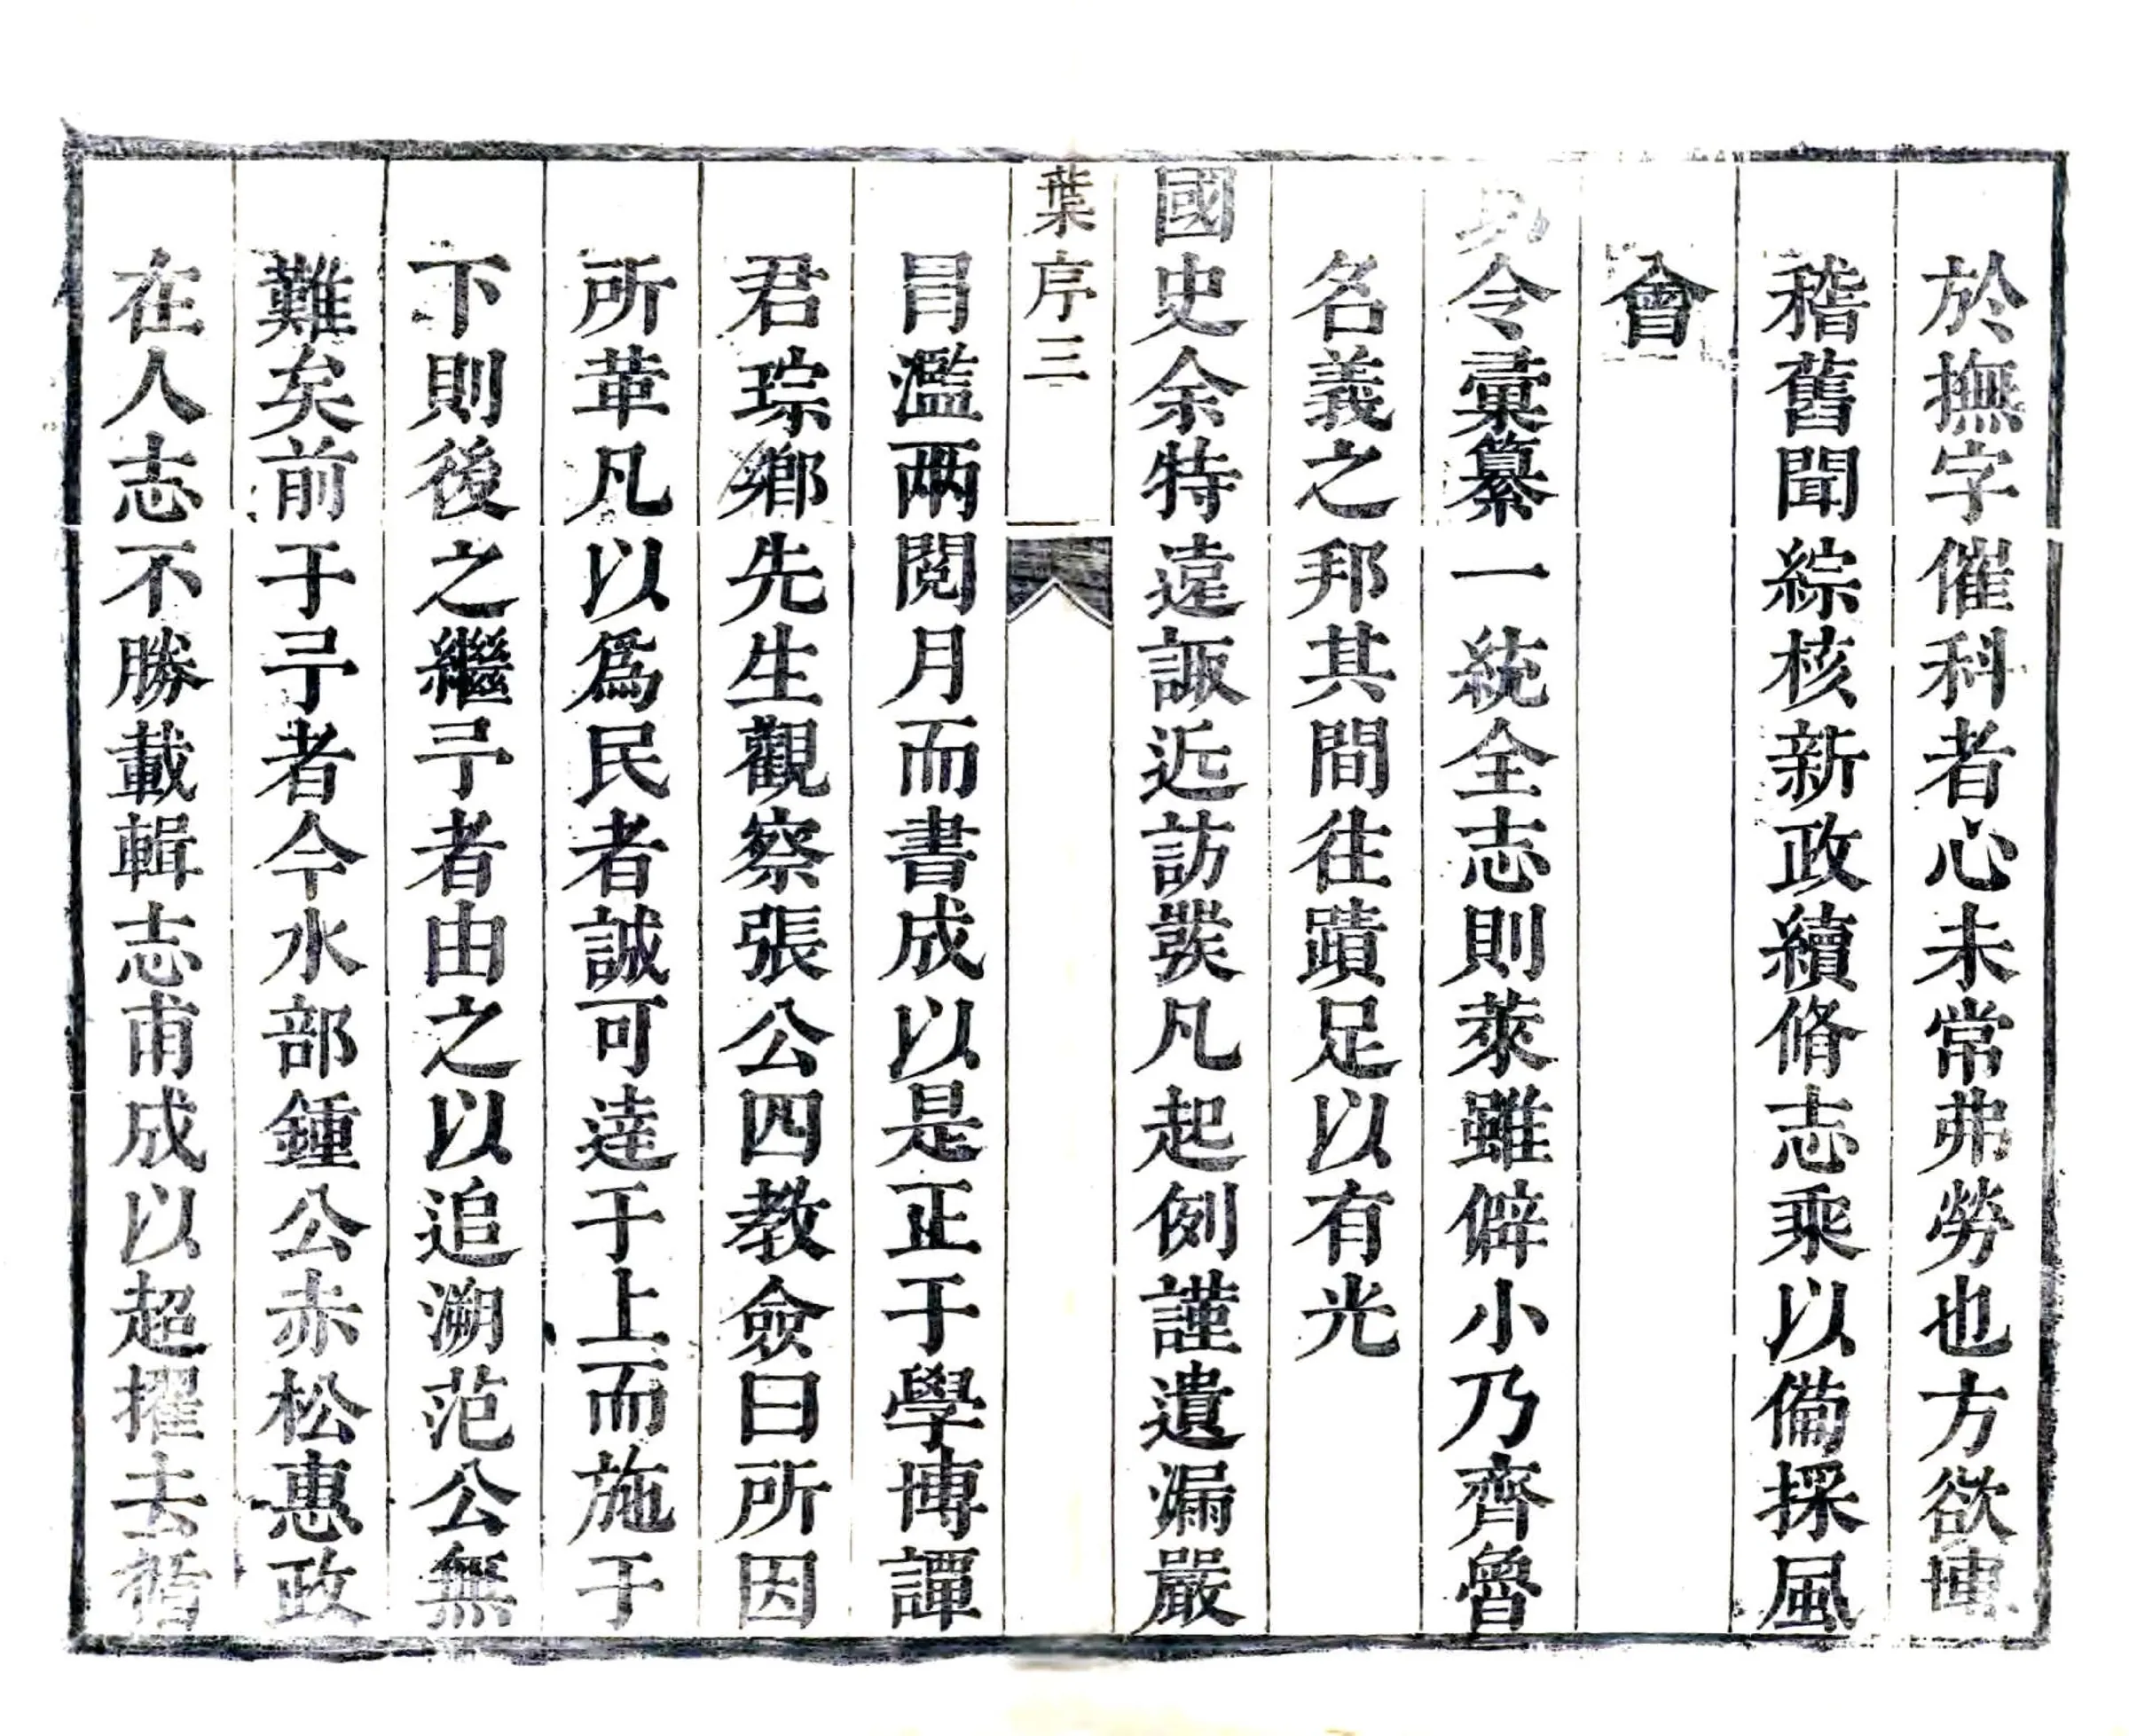 於撫字催科者心未常弗勞也方欲博
稽舊聞綜核新政續脩志乘以備採風
會
令彙纂一統全志則萊雖僻小乃齊魯
名義之邦其間往蹟足以有光
國史余特遠諏近訪發凡起例謹遺漏嚴
葉序三
冐濫兩閱月而書成以是正于學博譚
君琮鄉先生觀察張公四教僉曰所因
所革凡以爲民者誠可達于上而施于
下則後之繼予者由之以追溯范公無
難矣前于予者今水部鍾公赤松惠政
在人志不勝載輯志甫成以超擢去